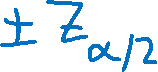 ± Z α/2